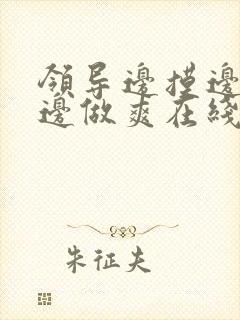 領导邊摸邊
邊做爽在綫
朱征夫